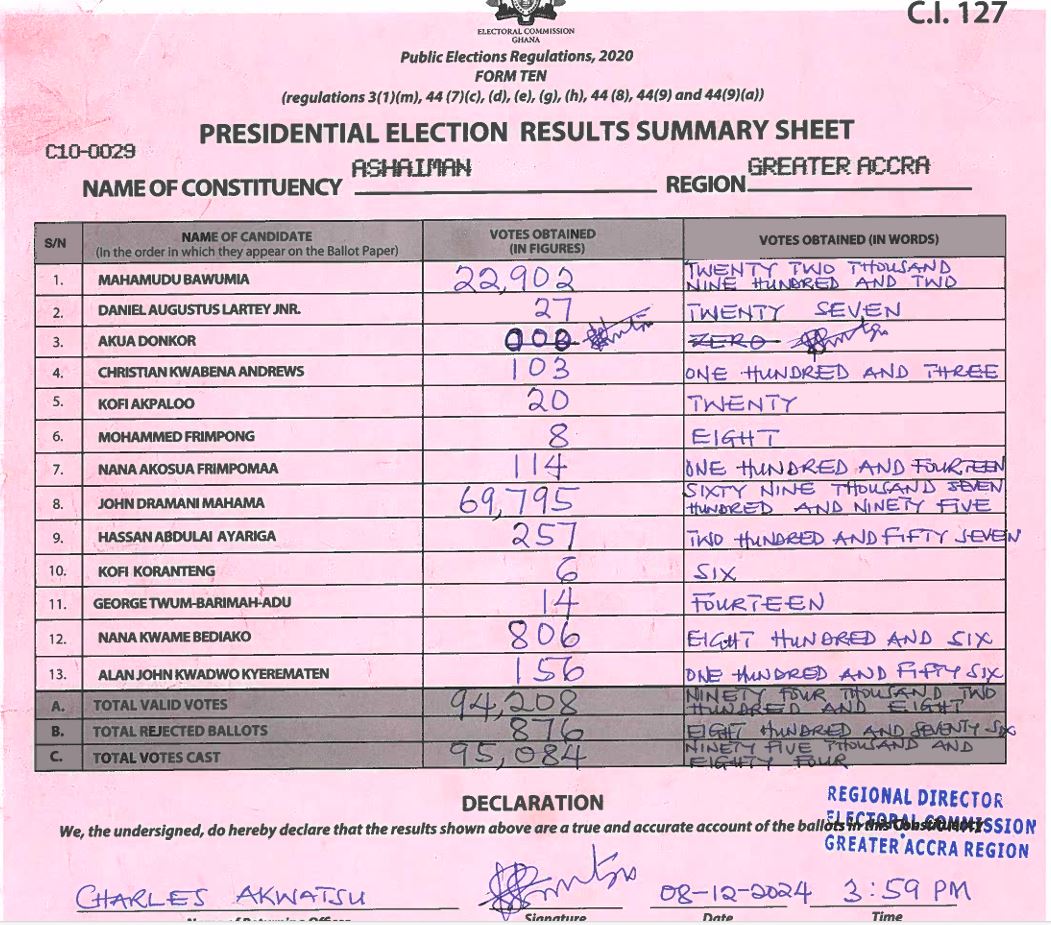 C.I. 127
ELECTORAL COMMISSION
GHANA
Public Elections Regulations, 2020
FORM TEN
(regulations 3(1)(m), 44 (7)(c), (d), (e), (g), (h), 44 (8), 44(9) and 44(9)(a))
PRESIDENTIAL ELECTION RESULTS SUMMARY SHEET
C10-0029
NAME OF CONSTITUENCY ASHAIMAN REGION GREATER ACCRA
S/N NAME OF CANDIDATE (In the order in which they appear on the Ballot Paper) VOTES OBTAINED (IN FIGURES) VOTES OBTAINED (IN WORDS)
1. MAHAMUDU BAWUMIA 22,902 TWENTY TWO THOUSAND NINE HUNDRED AND TWO
2. DANIEL AUGUSTUS LARTEY JNR. 27 TWENTY SEVEN
3. AKUA DONKOR 000 ZERO
4. CHRISTIAN KWABENA ANDREWS 103 ONE HUNDRED AND THREE
5. KOFI AKPALOO 20 TWENTY
6. MOHAMMED FRIMPONG 8 EIGHT
7. NANA AKOSUA FRIMPOMAA 114 ONE HUNDRED AND FOURTEEN
8. JOHN DRAMANI MAHAMA 69,795 SIXTY NINE THOUSAND SEVEN HUNDRED AND NINETY FIVE
9. HASSAN ABDULAI AYARIGA 257 TWO HUNDRED AND FIFTY SEVEN
10. KOFI KORANTENG 6 SIX
11. GEORGE TWUM-BARIMAH-ADU 14 FOURTEEN
12. NANA KWAME BEDIAKO 806 EIGHT HUNDRED AND SIX
13. ALAN JOHN KWADWO KYEREMATEN 156 ONE HUNDRED AND FIFTY SIX
A. TOTAL VALID VOTES 94,208 NINETY FOUR THOUSAND TWO HUNDRED AND EIGHT
B. TOTAL REJECTED BALLOTS 876 EIGHT HUNDRED AND SEVENTY SIX
C. TOTAL VOTES CAST 95,084 NINETY FIVE THOUSAND AND EIGHTY FOUR
DECLARATION
We, the undersigned, do hereby declare that the results shown above are a true and accurate account of the ballots in this Constituency
REGIONAL DIRECTOR
ELECTORAL COMMISSION
GREATER ACCRA REGION
CHARLES AKWATSU 08-12-2024 3:59 PM
Name of Returning Officer Signature Date Time